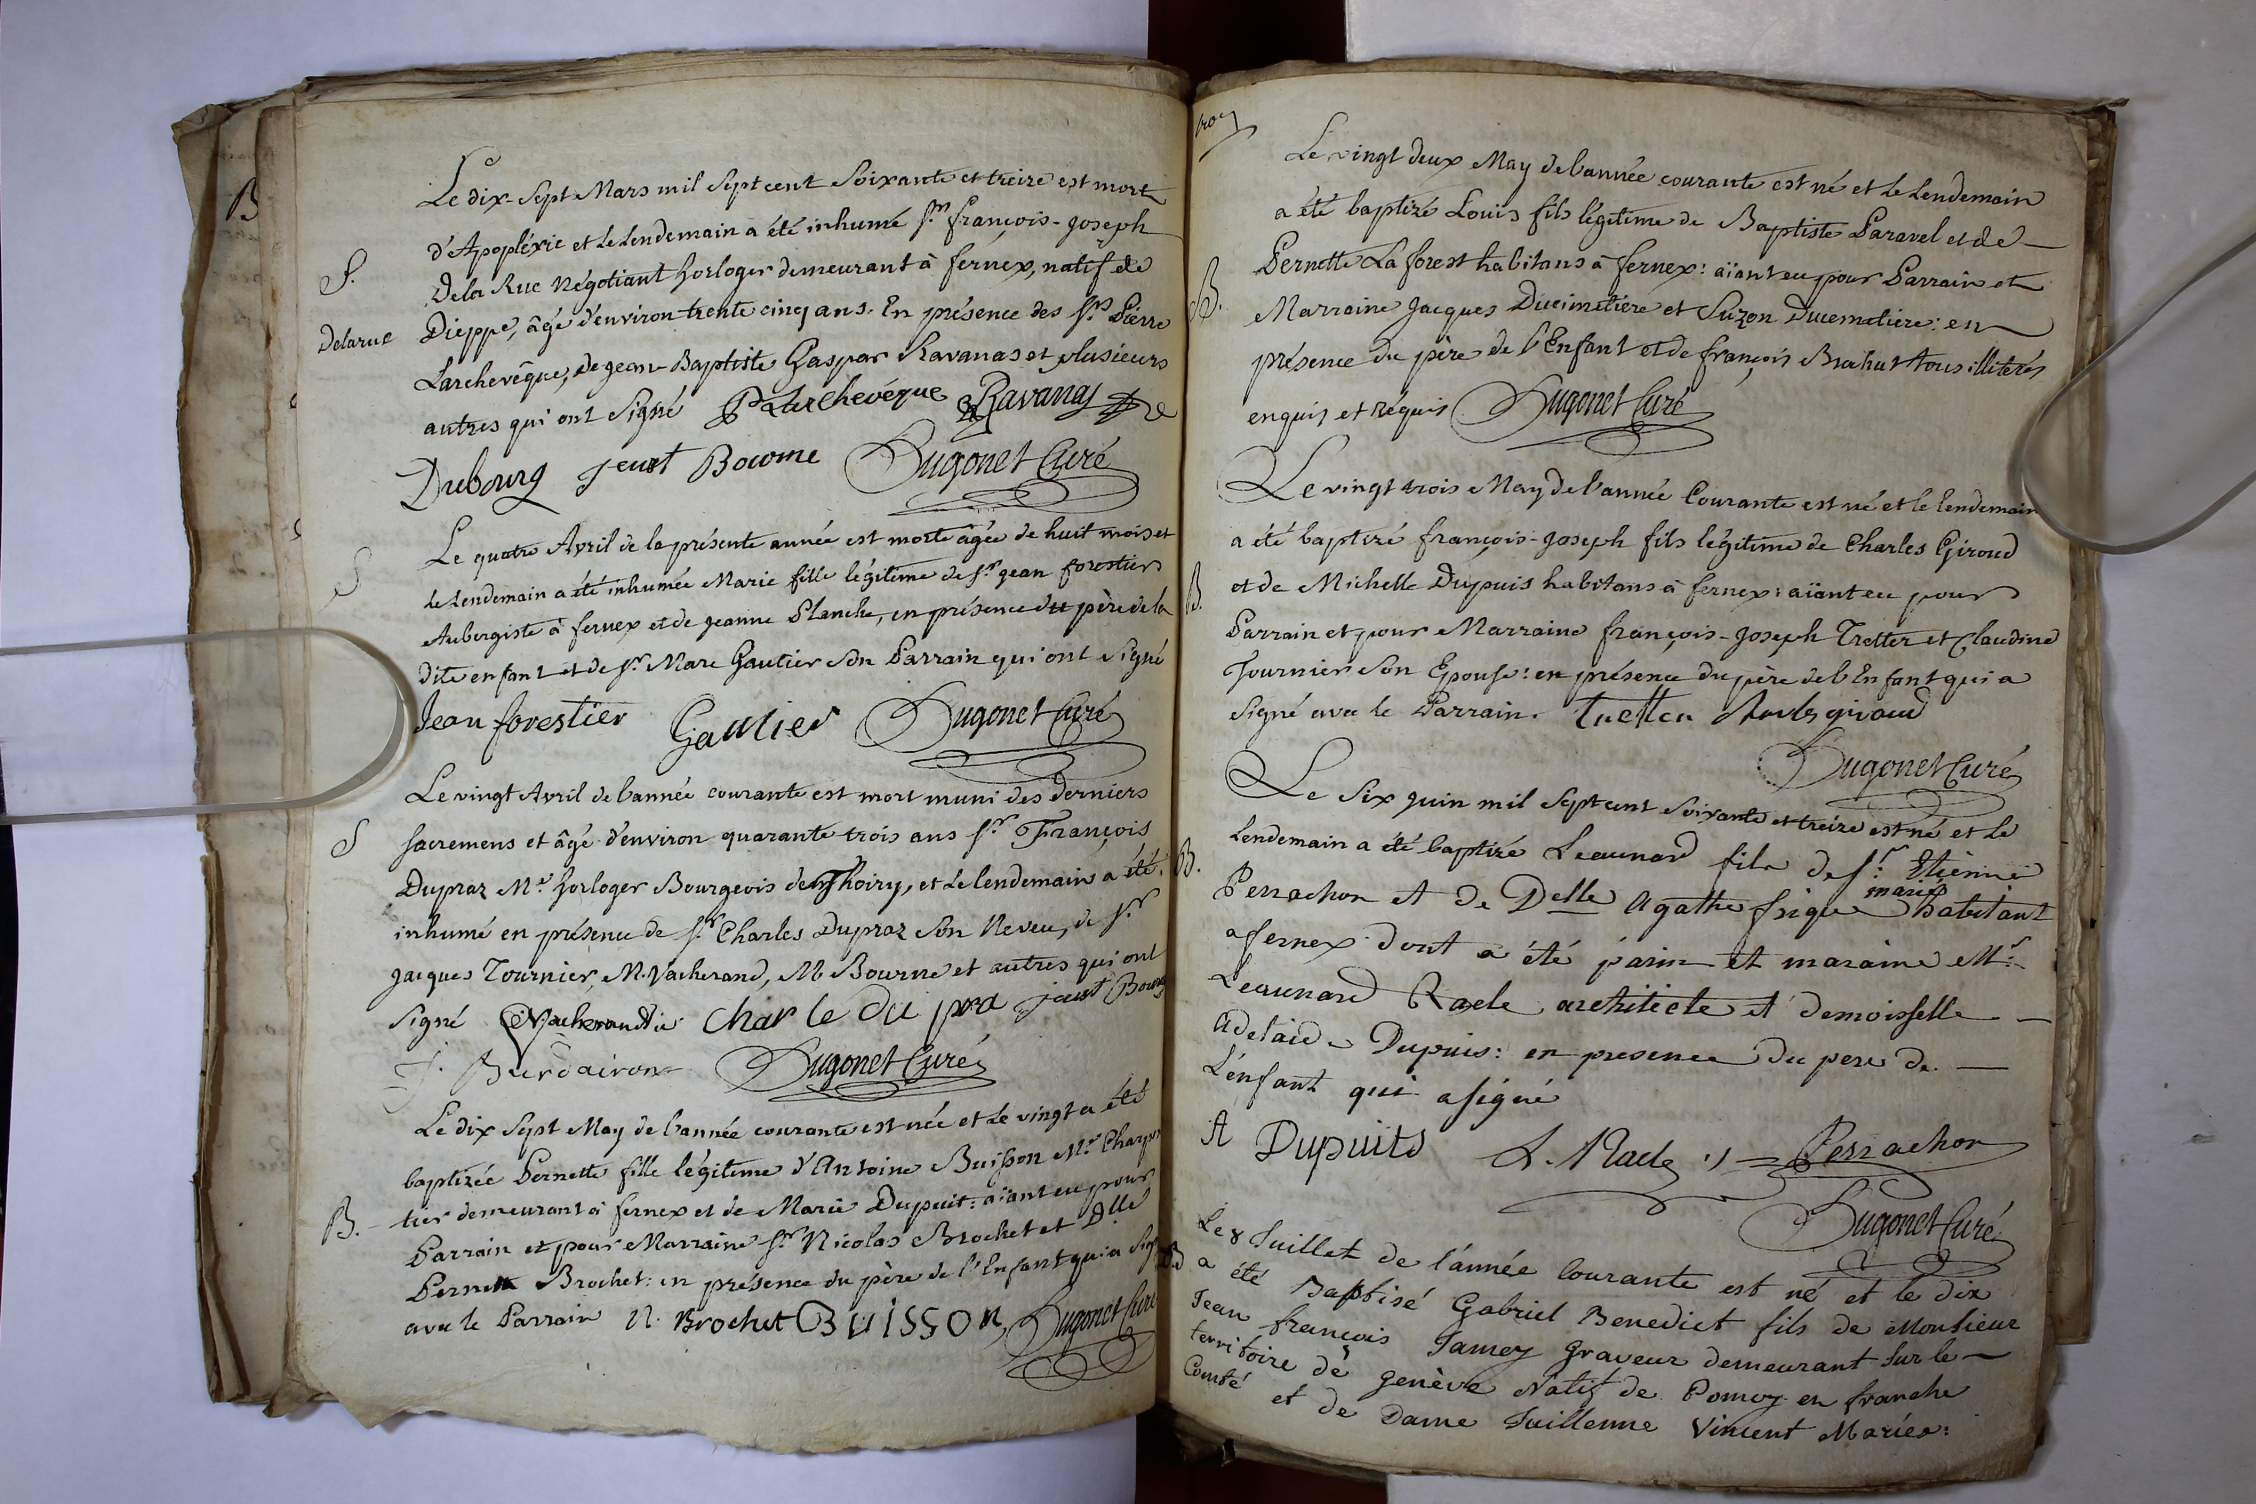 B
Le dix-Sept Mars mil Sept cent Soixante et treize est mort
d'Apopléxie et le Lendemain a été inhumé Sr. françois-joseph
S.
Dela Rue Négotiant horloger demeurant à fernex, natif de
Delarue
Dieppe, âgé d'environ trente cinq ans. En présence des Srs. Pierre
Larchevêque, de jean-Baptiste Gaspar Ravanas et plusieurs
autres qui ont Signé P Larchevéque Ravanas
Dubourg jeust Bourne Hugonet Curé
Le quatre Avril de la présente année est morte âgée de huit mois et
S
le Lendemain a été inhumée Marie fille légitime de Sr. jean forestier
Aubergiste à fernex et de jeanne Planche, en présence du père de la
dite enfant et de Sr. Marc Gautier Son Parrain qui ont Signé
Jean forestier Gautier Hugonet Curé
Le vingt Avril de l'année courante est mort muni des derniers
S
Sacremens et âgé d'environ quarante trois ans Sr. François
Dupraz Me. horloger Bourgeois de Thoiry, et le lendemain a été
inhumé en présence de Sr. Charles Dupraz Son Neveu, de Sr.
jacques Tournier, M. Vacherand, M. Bourne et autres qui ont
Signé Charle du pra jeust Bourne
J. Burdairon Hugonet Curé
Le dix Sept May de l'année courante est née et le vingt a été
baptizée Pernette fille légitime d'Antoine Buisson Me. Charpen
B.
tier demeurant à fernex et de Marie Dupuit: aïant eu pour
Parrain et pour Marraine Sr. Nicolas Brochet et Dlle
Pernette Brochet: en présence du père de l'Enfant qui a Signé
avec le Parrain N. Brochet BUISSON Hugonet Curé
Le vingt deux May de l'année courante est né et le Lendemain
a été baptizé Louis fils légitime de Baptiste Paravel et de
Pernette La forest habitans à fernex: aïant eu pour Parrain et
B.
Marraine jacques Ducimetière et Suzon Ducimetière: en
présence du père de l'Enfant et de françois Brachut tous illitérés
enquis et réquis Hugonet Curé
Le vingt trois May de l'année Courante est né et le lendemain
a été baptizé françois-joseph fils légitime de Charles Giroud
B.
et de Michelle Dupuis habitans à fernex: aïant eu pour
Parrain et pour Marraine françois-joseph Tretter et Claudine
Fournier Son Epouse: en présence du père de l'Enfant qui a
Signé avec le Parrain. Charles giroud
Hugonet Curé
Le Six juin mil Sept cent Soixante et treize est né et le
B.
Lendemain a été baptizé Leaunard fils de Sr. Etienne
Perrachon et de Delle Agathe frique mariés habitant
a fernex dont a été parin et maraine Mr.
Leaunard Racle architecte et demoisselle
Adelaide Dupuis: en presence du pere de
L'enfant qui a signé
A Dupuits L. Racle Perrachon
Hugonet Curé
B
Le 8 Juillet de l'année Courante est né et le dix
a été Baptisé Gabriel Benedict fils de Monsieur
Jean françois Jamey Graveur demeurant Sur le
territoire de genève Natif de Pomoy en franche
Comté et de Dame Juillenne Vincent Mariés: